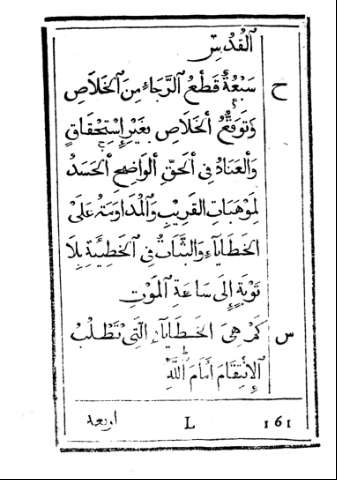 ٱلْقُدُسِ
ح سَبْعَةٌ قَطْعُ ٱلرَّجَاءِ مِنَ ٱلْخَلَاصِ
وَتَوَقُّعُ ٱلْخَلَاصِ بِغَيْرِ إِسْتِحْقَاقٍ
وَٱلْعِنَادُ فِي ٱلْحَقِّ ٱلْوَاضِحِ ٱلْحَسَدُ
لِمَوْهِبَاتِ ٱلْقَرِيبِ وَٱلْمُدَاوَمَةُ عَلَىٰ
ٱلْخَطَايَآءِ وَٱلثَّبَاتُ فِي ٱلْخَطِيَّةِ بِلَا
تَوْبَةٍ إِلَى سَاعَةِ ٱلْمَوْتِ
س كَمْ هِيَ ٱلْخَطَايَآءِ ٱلَّتِي تَطْلُبُ
ٱلْإِنْتِقَامَ أَمَامَ ٱللّٰهِ
161 L اربعة